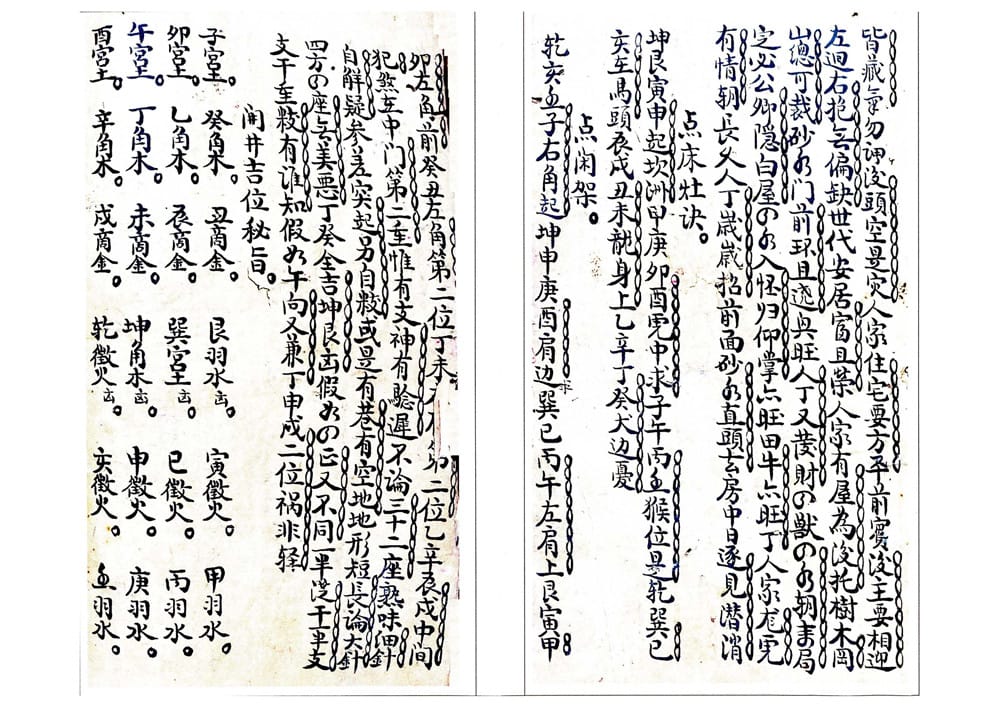 皆藏氣勿呷後頭空是宂人家住宅要方平前賓後主要相迎
左迴右抱無偏缺世代安居富且榮人家有屋為後托樹木岡
山總可裁砂水门前环且遶與旺人丁又發財の獸の水朝来局
定必公卿隐白屋の水入怀归仰掌亦旺田牛亦旺丁人家尨児
有情朝長久人丁歲歲招前面砂水直頭去房中日逐見潛消
点床灶诀。
坤艮寅申起坎洲甲庚卯酉児中求子午丙壬猴位是乾巽巳
亥在馬頭辰戌丑未龍身上乙辛丁癸大边憂
点闲架。
乾亥壬子右角起坤申庚酉肩边巽巳丙午左肩上艮寅甲
卯左角前癸丑左角第二位丁未 二位乙辛辰戌中间
犯煞在中门第二重惟有支神有驗遲不論三十二座熟味細針
自解疑参差突起另自数或是有巷有空地地形短長論大針
四方の座無美悪丁癸全吉坤艮凶假如の正又不同一半浼干半支
支干至数有谁知假如午向又兼丁申戌二位祸非轻
闹井吉位秘旨。
子宫土。癸角木。丑商金。艮羽水凶。寅徵火。甲羽水。
卯宫土。乙角木。辰商金。巽宫土凶。巳徵火。丙羽水。
午宫土。丁角木。未商金。坤角木凶。申徵火。庚羽水。
酉宫土。辛角木。戌商金。乾徵火凶。亥徵火。壬羽水。